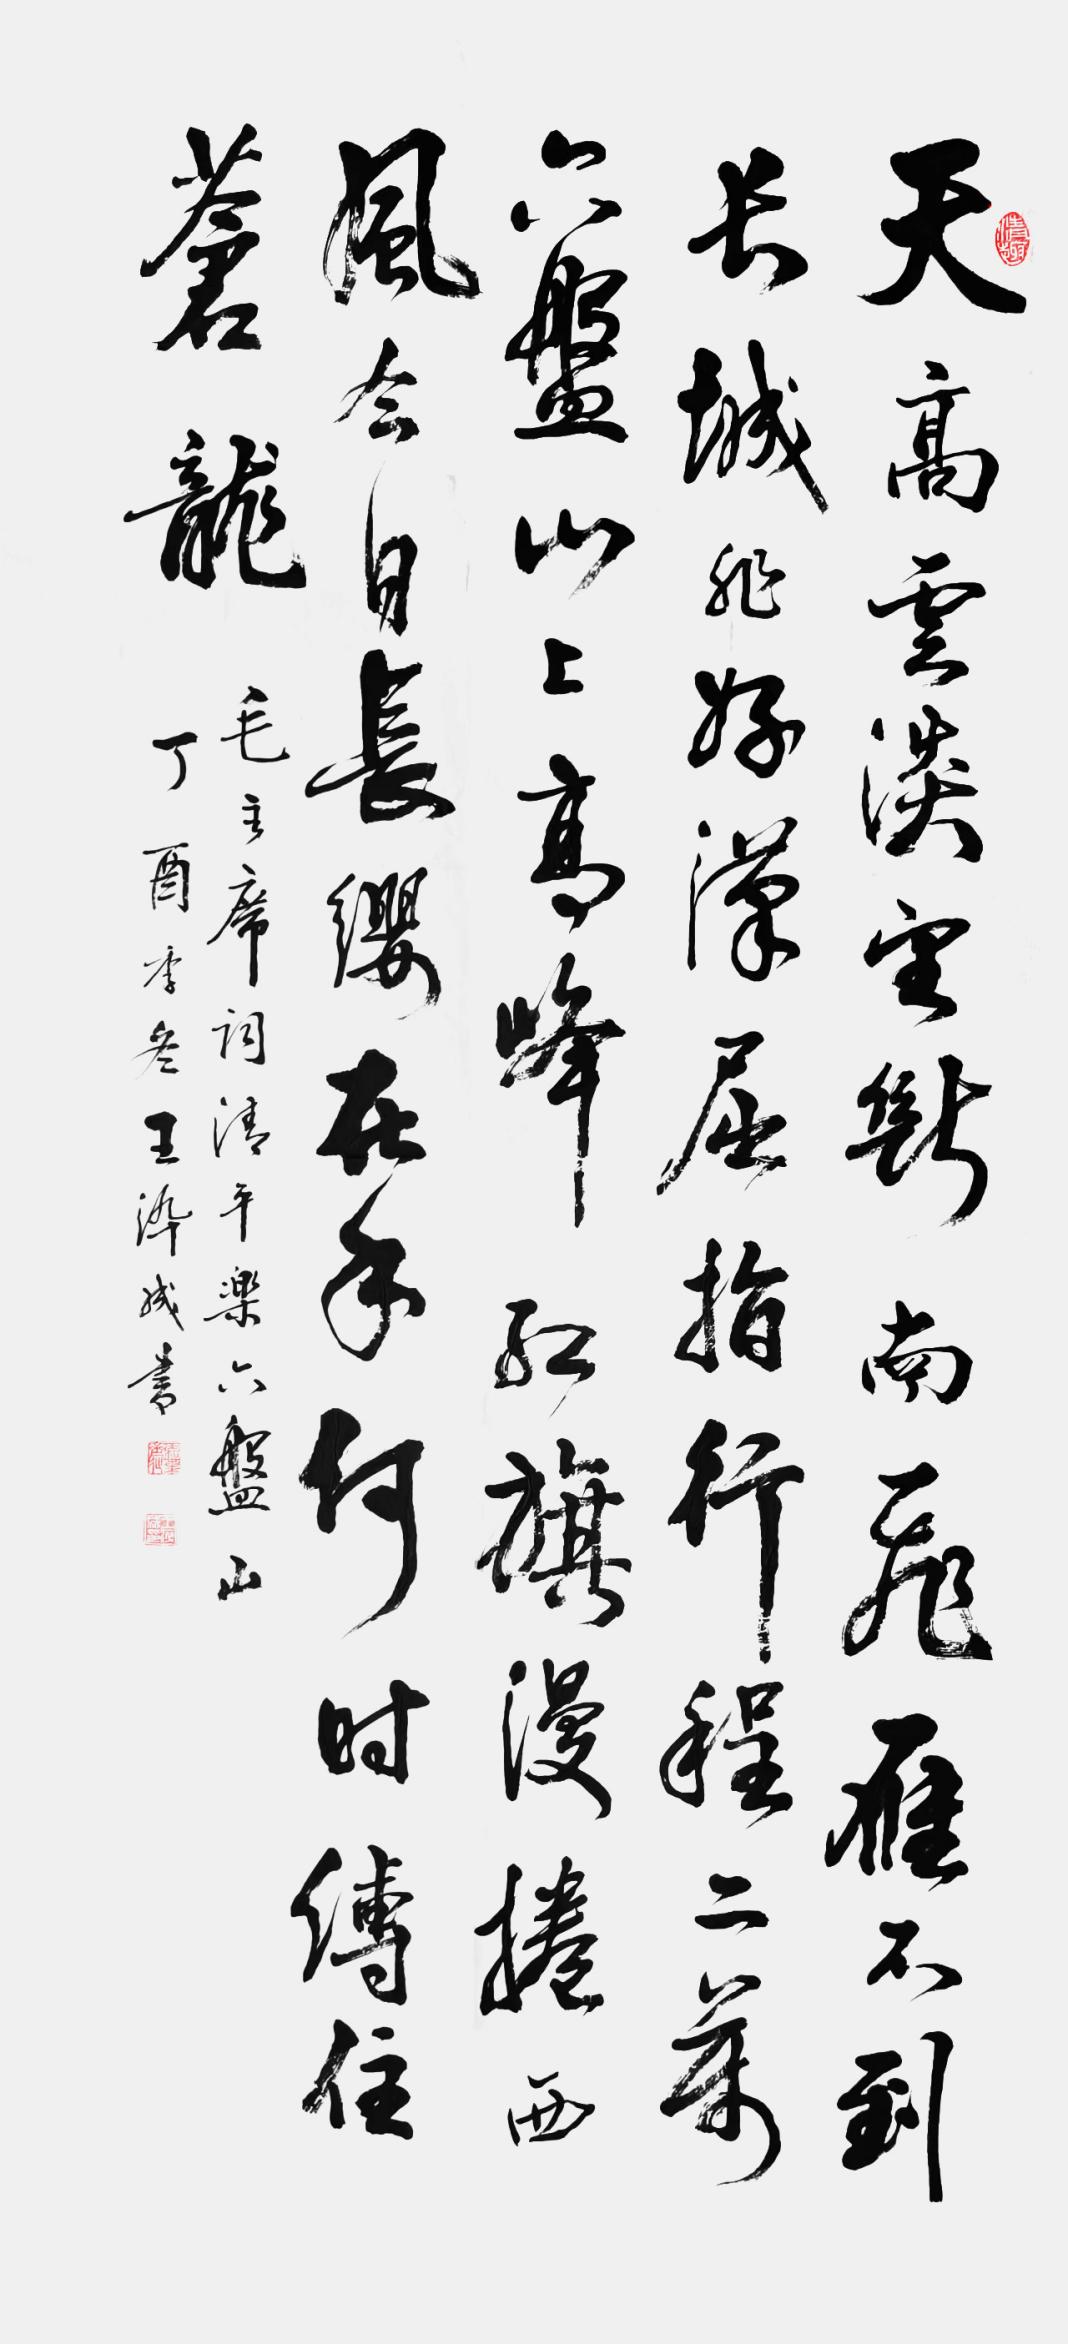 天高雲淡望斷南飛雁不到
长城非好漢屈指行程二萬
六盤山上高峰紅旗漫捲西
風今日長纓在手何时縛住
蒼龍
毛主席词清平樂六盤山
丁酉季冬王沛成書